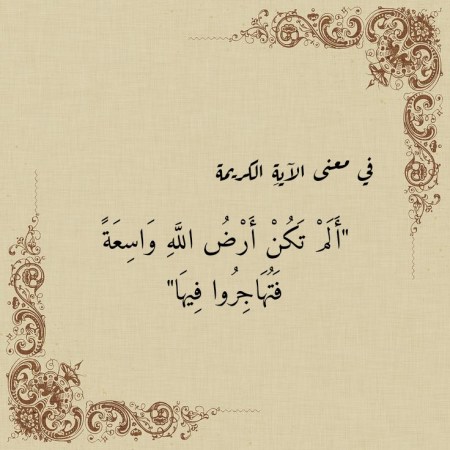 في معنى الآيةِ الكريمة
"أَلَمْ تَكُنْ أَرْضُ اللَّهِ وَاسِعَةً
فَتُهَاجِرُوا فِيهَا"